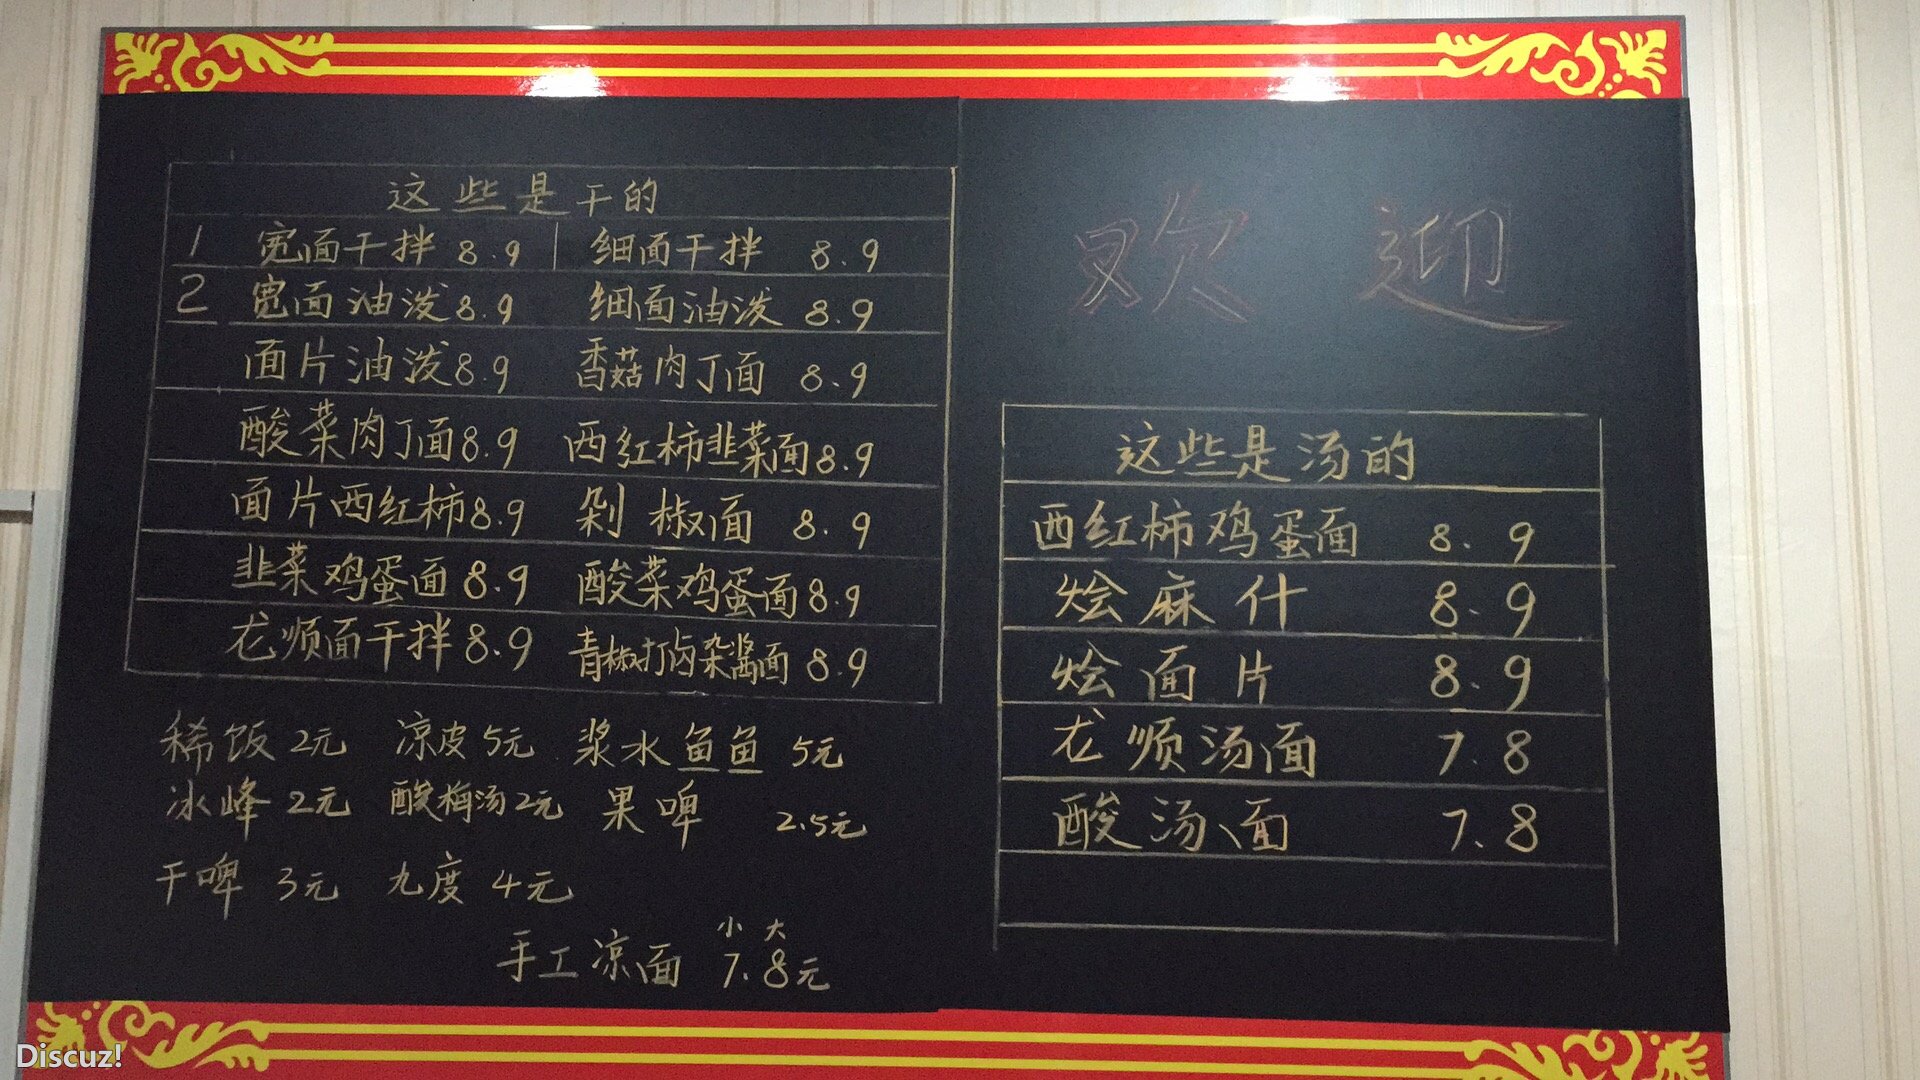 这些是干的
1 宽面干拌 8.9 细面干拌 8.9
2 宽面油泼 8.9 细面油泼 8.9
面片油泼 8.9 香菇肉丁面 8.9
酸菜肉丁面 8.9 西红柿韭菜面 8.9
面片西红柿 8.9 剁椒面 8.9
韭菜鸡蛋面 8.9 酸菜鸡蛋面 8.9
龙须面干拌 8.9 青椒打卤杂酱面 8.9
稀饭 2元 凉皮 5元 浆水鱼鱼 5元
冰峰 2元 酸梅汤 2元 果啤 2.5元
干啤 3元 九度 4元
小 大
手工凉面 7.8元
欢迎
这些是汤的
西红柿鸡蛋面 8.9
烩麻什 8.9
烩面片 8.9
龙须汤面 7.8
酸汤面 7.8
Discuz!